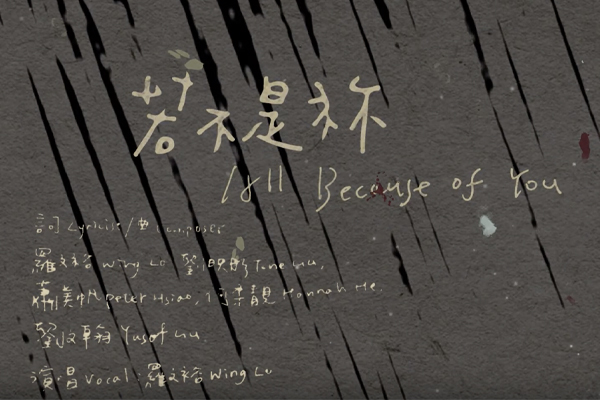 若不是祢
All Because of You
詞 Lyricist/曲 Composer
羅文裕 Wing Lo 劉 Tone Liu,
蕭 Peter Hsiao, 何 Hannah He
劉 Yusof Liu
演唱 Vocal 羅文裕 Wing Lo